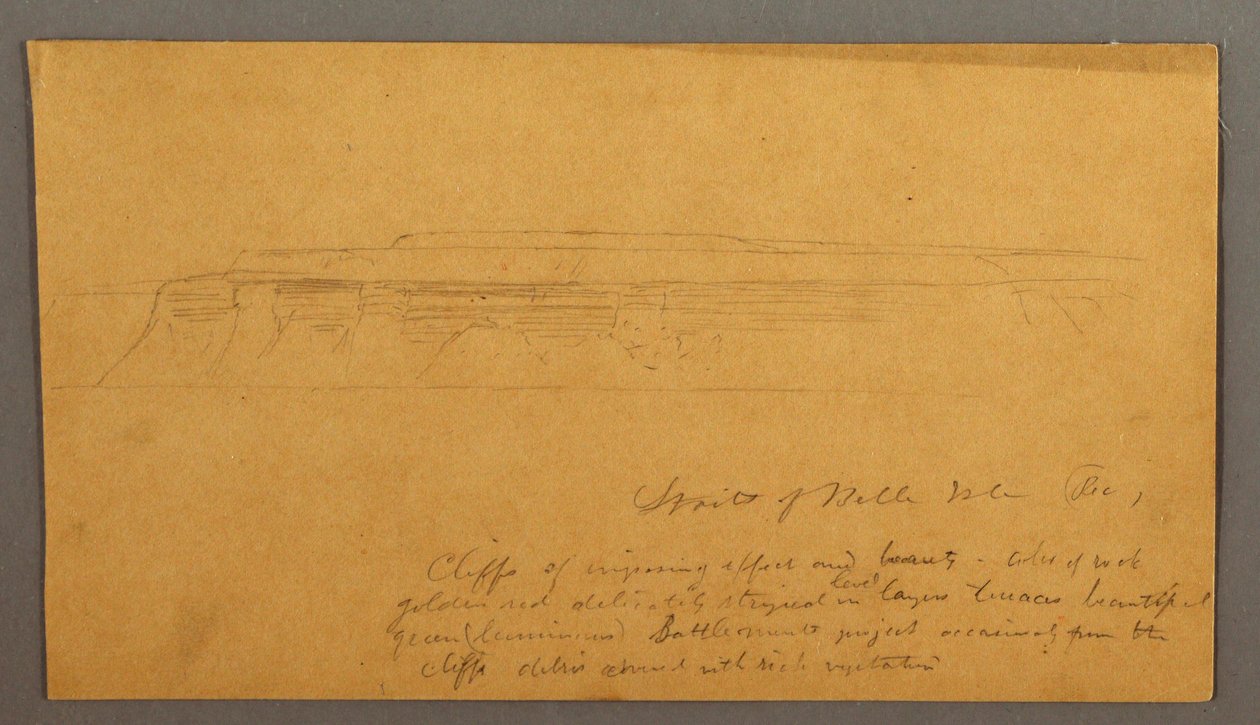 Straits of Belle Isle (Rec,
Cliffs of imposing effect and beauty - color of rock
golden red delicately striped in level layers terraces beautiful
green (luminous) Battlements project occasionaly from the
cliffs debris covered with rich vegetation